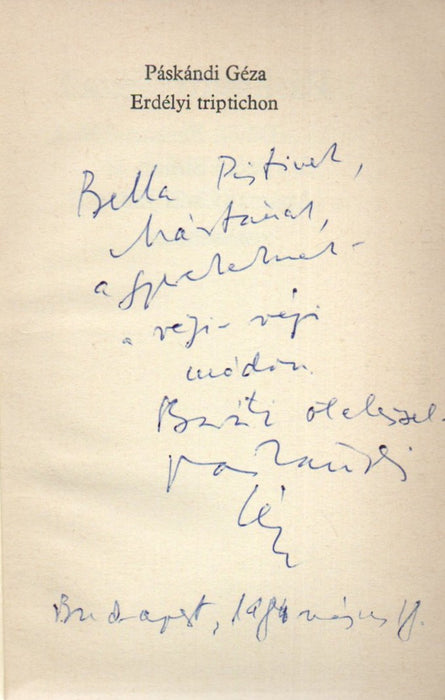 Páskándi Géza
Erdélyi triptichon
Bella Pistinek,
Mártának,
a gyerekeknek -
a régi-régi
módon
Baráti öleléssel
Páskándi
Géza
Budapest, 1984 május